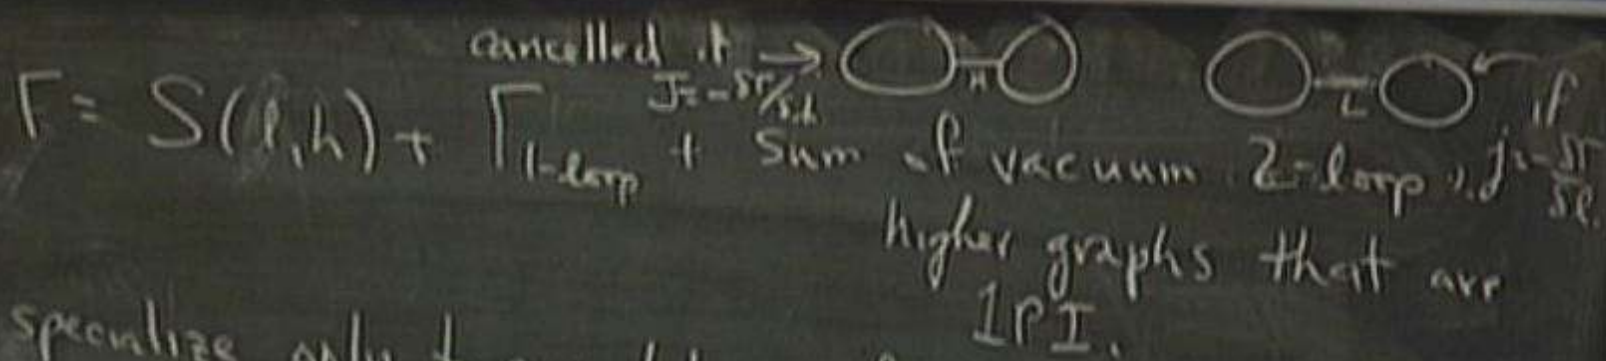 cancelled if → H L if
J = -δΓ/δh
Γ = S(l,h) + Γ1-loop + Sum of vacuum 2-loop & j = -δΓ/δl.
higher graphs that are
1PI.
specialize only to